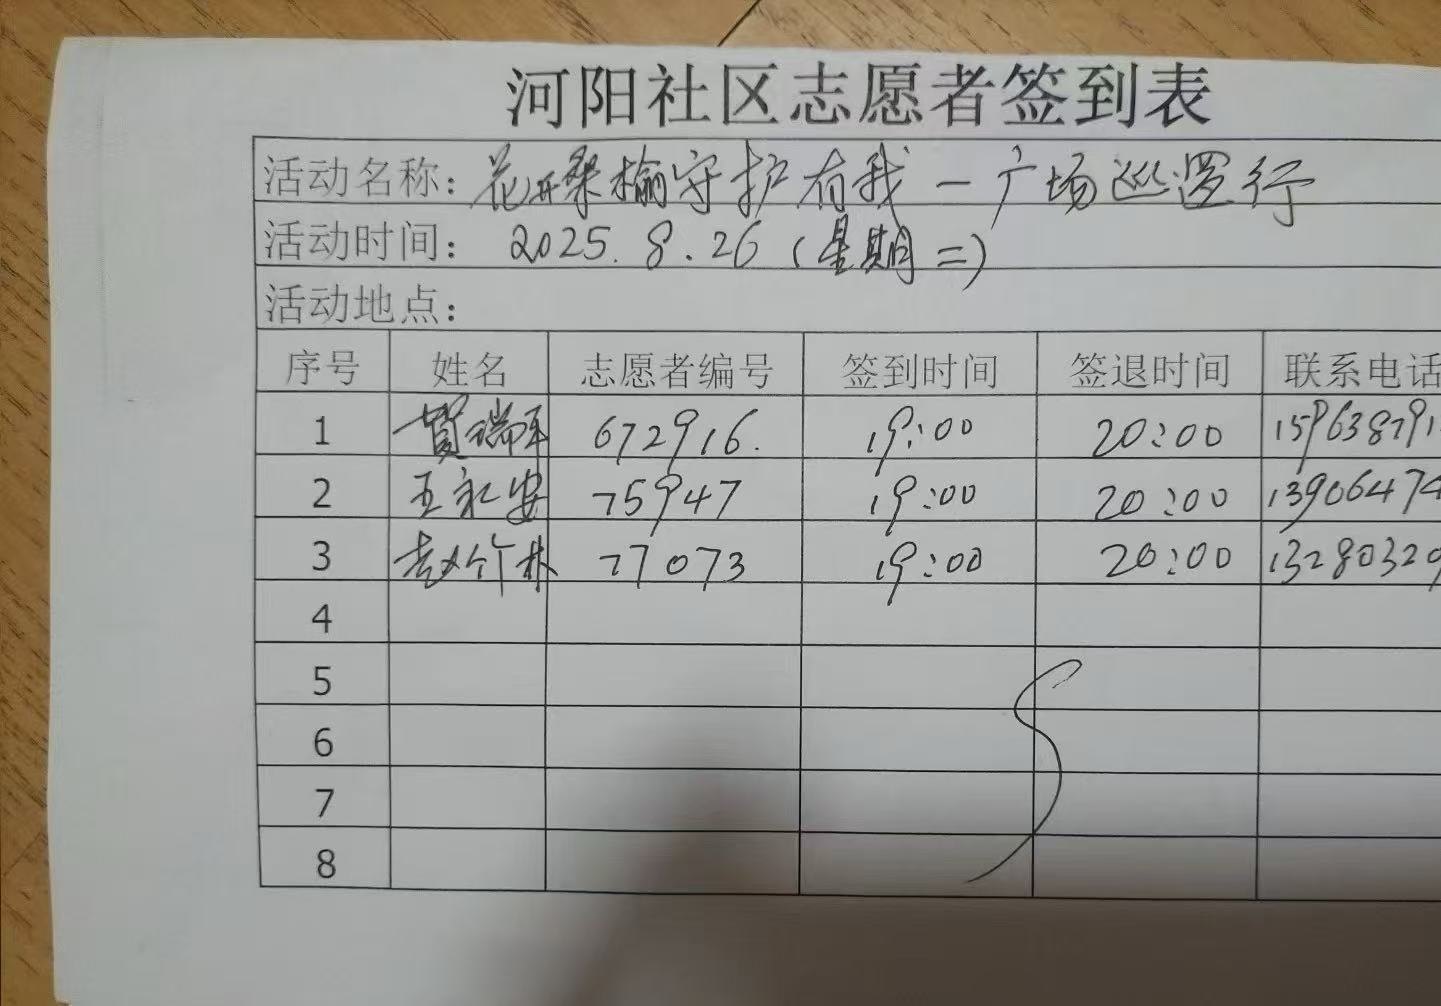 河阳社区志愿者签到表
活动名称: 花开桑榆守护有我－广场巡逻行
活动时间: 2025.8.26（星期二）
活动地点:
序号 姓名 志愿者编号 签到时间 签退时间 联系电话
1 贾瑞 672916. 19:00 20:00 159638791
2 王永安 75947 19:00 20:00 13906474
3 赵竹林 77073 19:00 20:00 13280329
4
5
6
7
8